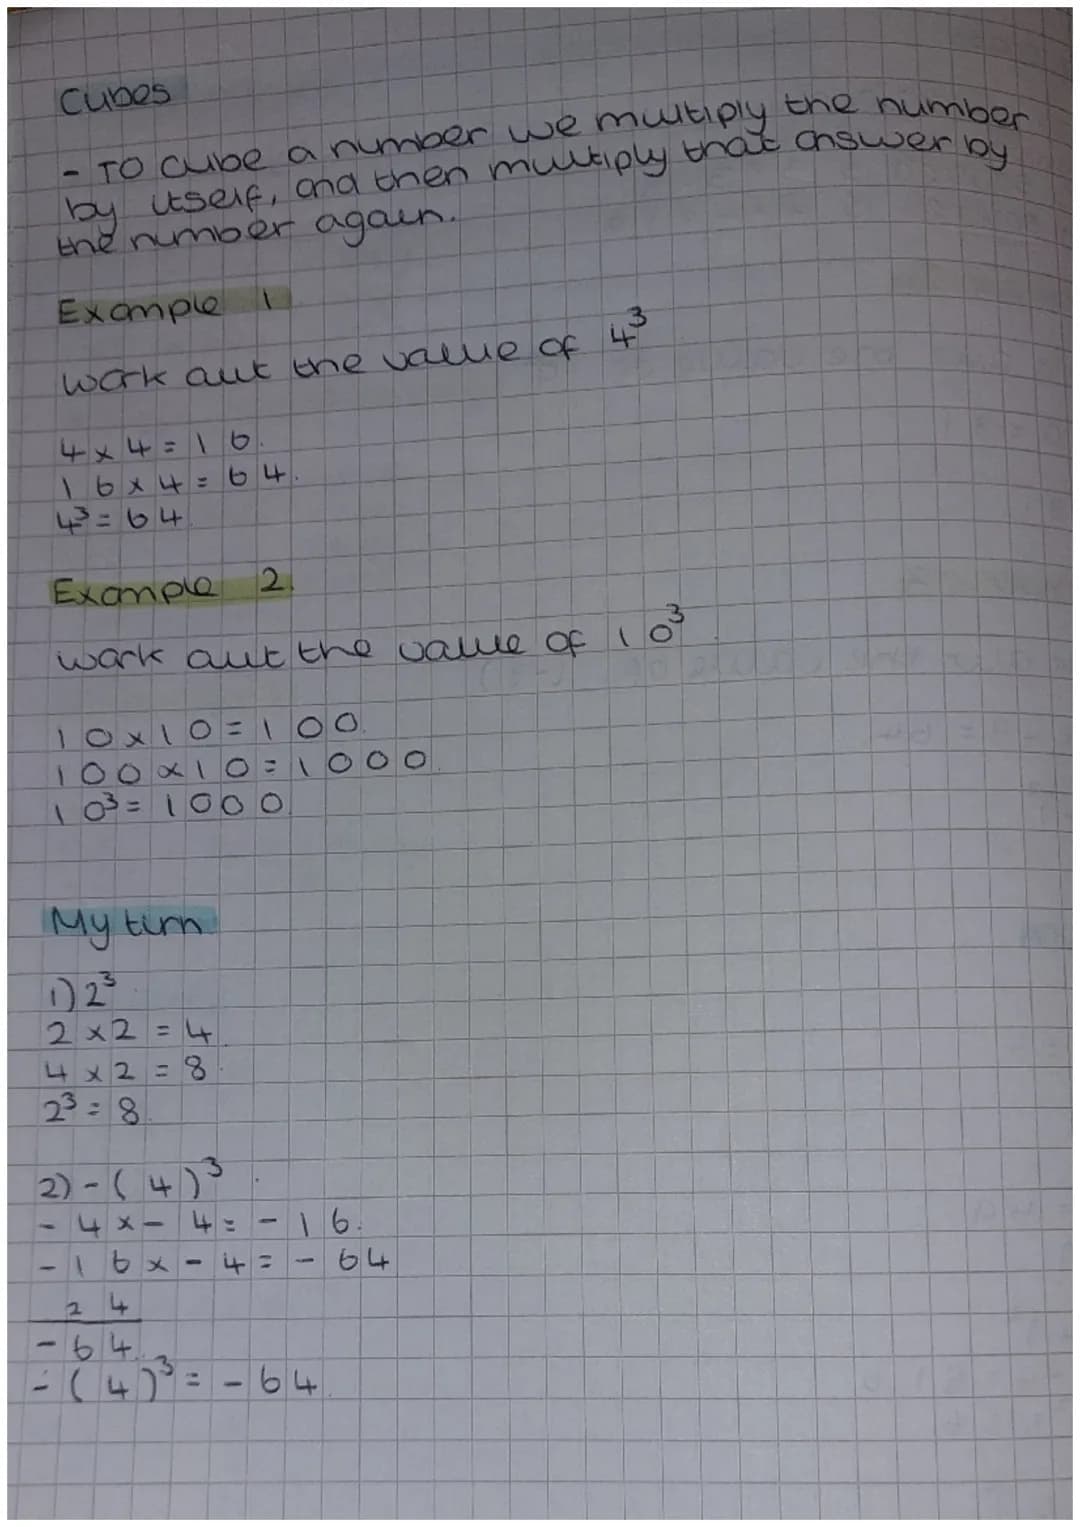 Cubes
- To cube a number we multiply the number
by itself, and then multiply that answer by
the number again.
Example 1
Work out the value of 4³
4 × 4 = 16.
16 × 4 = 64.
4³ = 64
Example 2.
Work out the value of 10³
10 × 10 = 100.
100 × 10 = 1000
10³ = 1000
My turn
1) 2³
2 × 2 = 4
4 × 2 = 8
2³ = 8.
2) - (4)³
- 4 × - 4 = - 16.
- 16 × - 4 = - 64
2 4
- 64.
- (4)³ = - 64